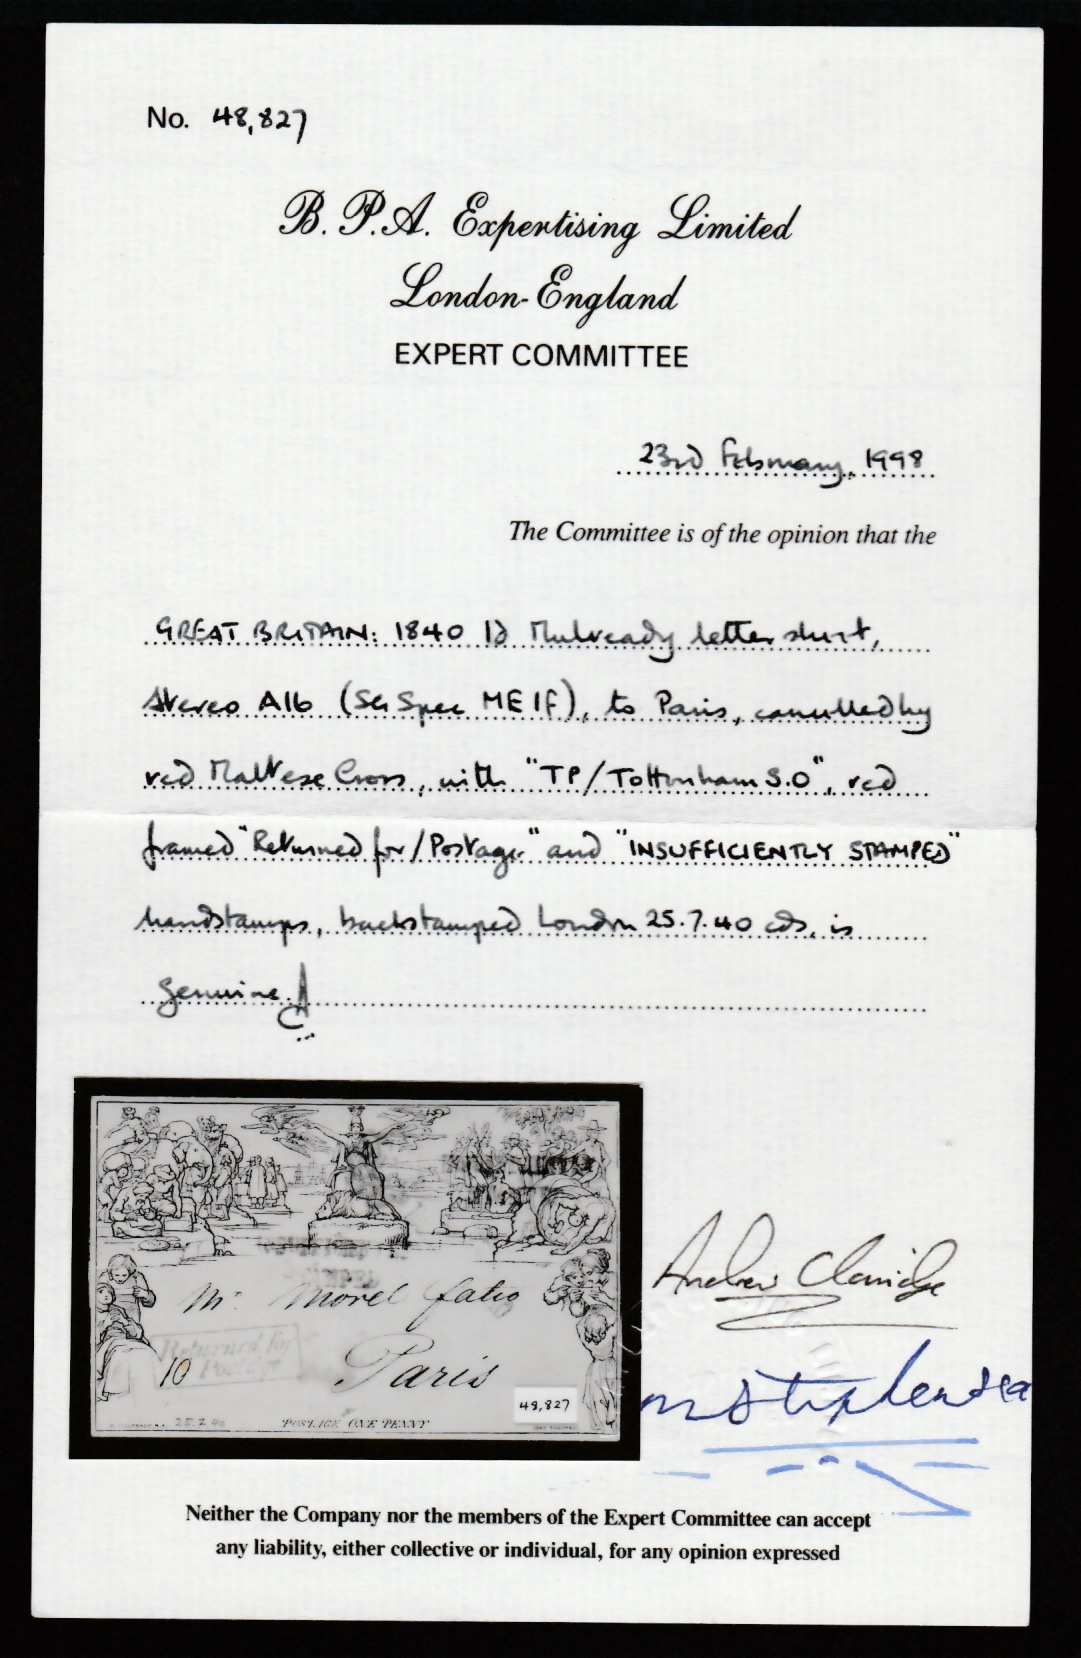 No. 48,827
B. P. A. Expertising Limited
London-England
EXPERT COMMITTEE
23rd February, 1998
The Committee is of the opinion that the
GREAT BRITAIN: 1840 1d Mulready letter sheet,
stereo A16 (SG Spec ME1f), to Paris, cancelled by
red Maltese Cross, with "TP/Tottenham S.O", red
framed "Returned for/Postage" and "INSUFFICIENTLY STAMPED"
handstamps, backstamped London 25.7.40 cds, is
genuine.
Mr. Morel fatio
Returned for
Postage
10
Paris
48,827
POSTAGE ONE PENNY
Andrew Claridge
Neither the Company nor the members of the Expert Committee can accept
any liability, either collective or individual, for any opinion expressed